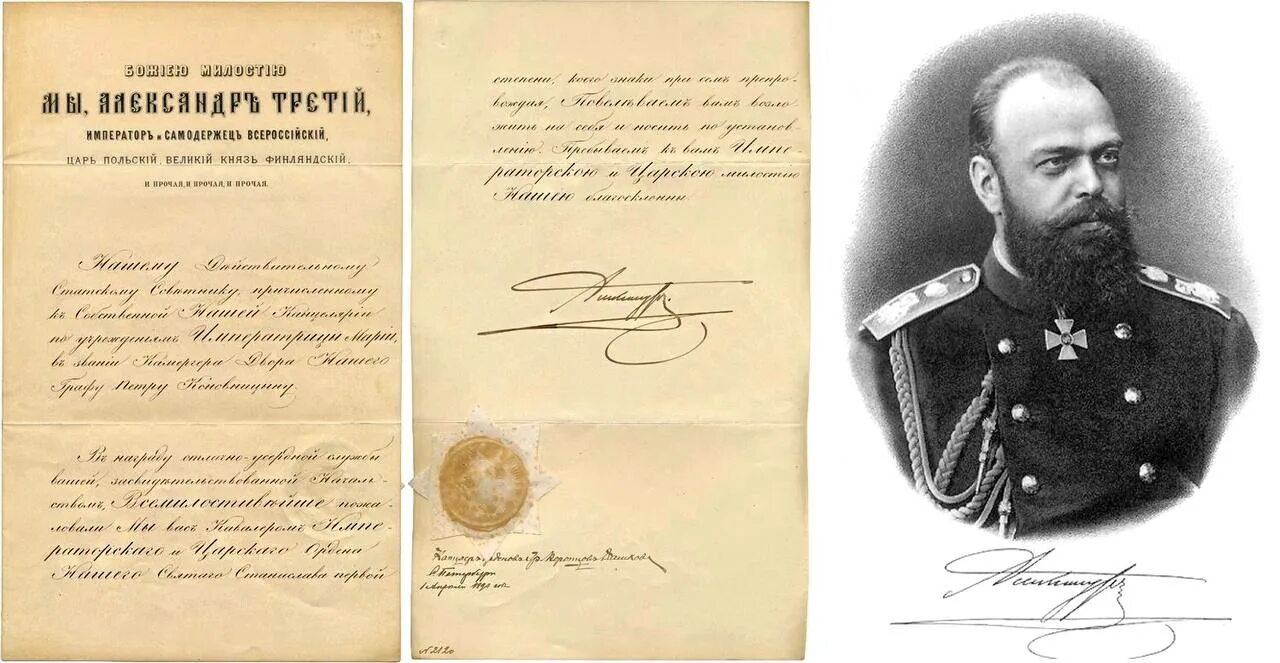 БОЖІЕЮ МИЛОСТІЮ
МЫ, АЛЕКСАНДРЪ ТРЕТІЙ,
ИМПЕРАТОРЪ и САМОДЕРЖЕЦЪ ВСЕРОССІЙСКІЙ,
ЦАРЬ ПОЛЬСКІЙ, ВЕЛИКІЙ КНЯЗЬ ФИНЛЯНДСКІЙ,
И ПРОЧАЯ, И ПРОЧАЯ, И ПРОЧАЯ.
Нашему Дѣйствительному
Статскому Совѣтнику, причисленному
къ Собственной Нашей Канцеляріи
по учрежденіямъ Императрицы Маріи,
въ званіи Камергера Двора Нашего
Графу Петру Коновницину.
Въ награду отлично-усердной службы
вашей, засвидѣтельствованной Началь-
ствомъ, Всемилостивѣйше пожа-
ловали Мы васъ Кавалеромъ Импе-
раторскаго и Царскаго Ордена
Нашего Святаго Станислава первой
степени, коего знаки при семъ препро-
вождая, Повелѣваемъ вамъ возло-
жить на себя и носить по установ-
ленію. Пребываемъ къ вамъ Импе-
раторскою и Царскою милостію
Нашею благосклонны.
Канцлеръ орденовъ Гр. Воронцовъ Дашковъ
С. Петербургъ
1 Апрѣля 1890 года
№ 2120